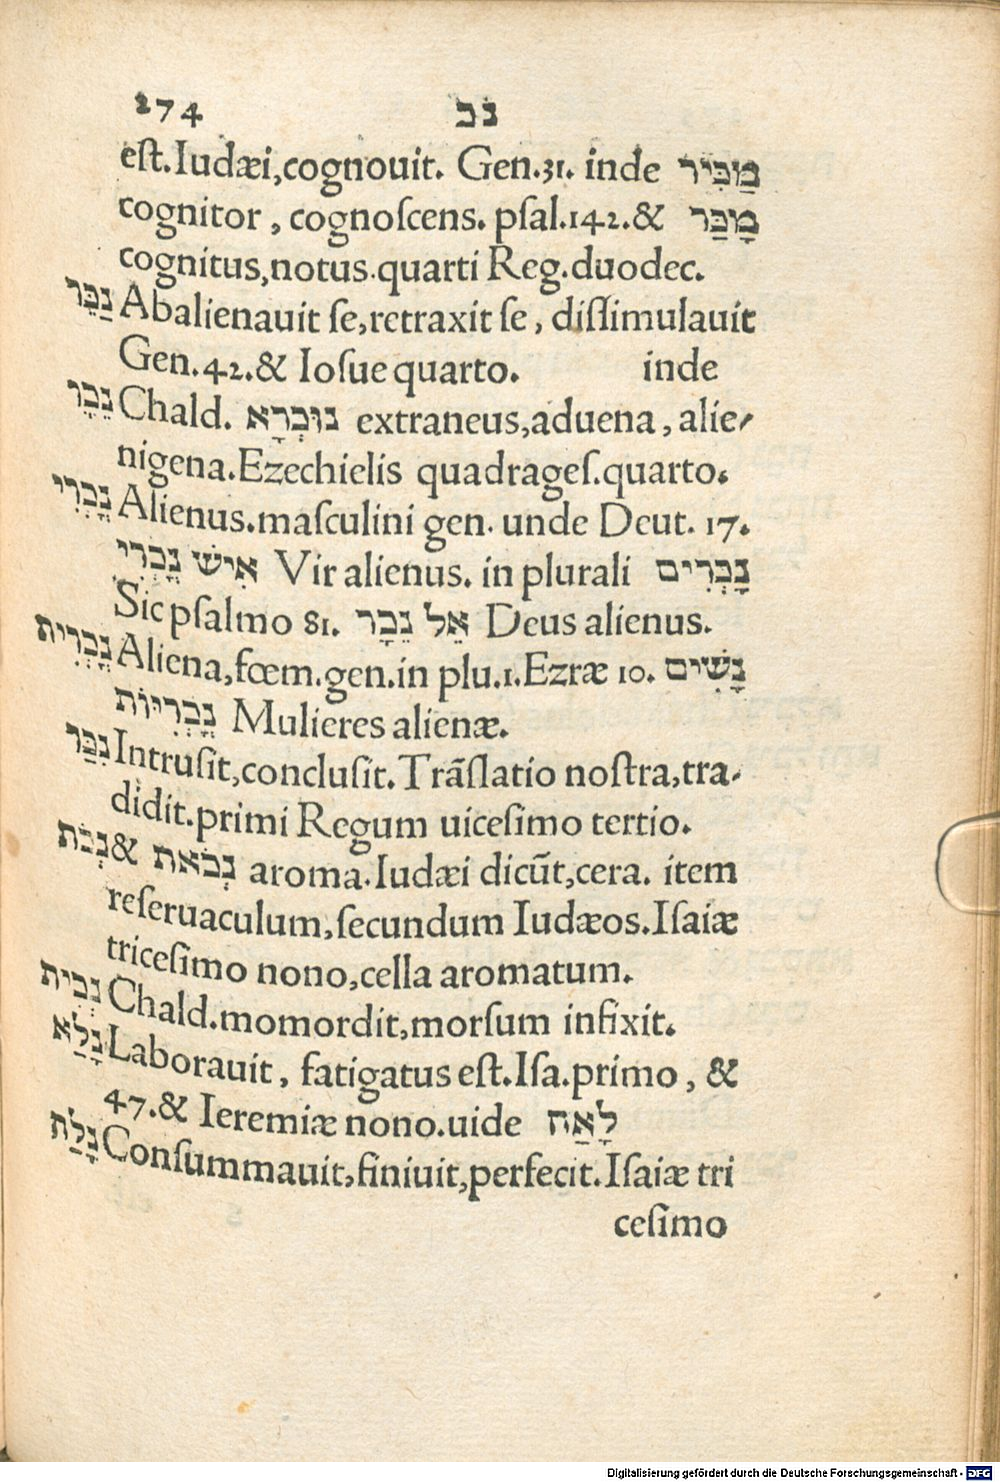 274 נכ
est. Iudæi, cognouit. Gen. 31. inde מַכִּיר
cognitor, cognoſcens. pſal. 142. & מָכַּר
cognitus, notus. quarti Reg. duodec.
נַכֵּר Abalienauit ſe, retraxit ſe, diſſimulauit
Gen. 42. & Ioſue quarto. inde
נֵכָר Chald. נוּכְרָא extraneus, aduena, alie-
nigena. Ezechielis quadrageſ. quarto.
נָכְרִי Alienus. maſculini gen. unde Deut. 17.
אִישׁ נָכְרִי Vir alienus. in plurali נָכְרִים
Sic pſalmo 81. אֵל נֵכָר Deus alienus.
נָכְרִית Aliena, fœm. gen. in plu. 1. Ezræ 10. נָשִׁים
נָכְרִיּוֹת Mulieres alienæ.
נִכַּר Intruſit, concluſit. Trãſlatio noſtra, tra-
didit. primi Regum uiceſimo tertio.
נְכֹת & נְכֹאת aroma. Iudæi dicũt, cera. item
reſeruaculum, ſecundum Iudæos. Iſaiæ
triceſimo nono, cella aromatum.
נְכִית Chald. momordit, morſum infixit.
נָלַא Laborauit, fatigatus eſt. Iſa. primo, &
47. & Ieremiæ nono. uide לָאַה
נָלַת Conſummauit, finiuit, perfecit. Iſaiæ tri
ceſimo
Digitalisierung gefördert durch die Deutsche Forschungsgemeinschaft - DFG